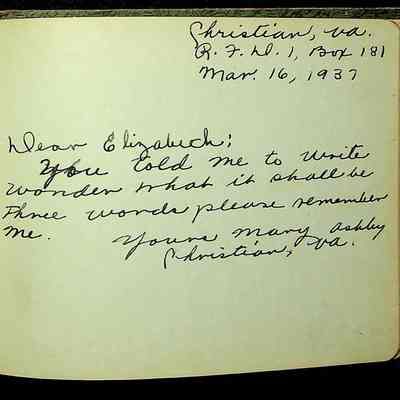 Christian, Va.
R. F. D. 1, Box 181
Mar. 16, 1937
Dear Elizabeth;
You told me to write
wonder what it shall be
Three words please remember
me.
Yours Mary Ashby
Christian, Va.